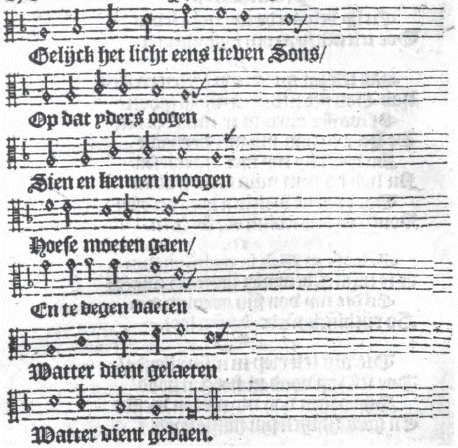 Gelijck het licht eens lieven Sons/
Op dat yders oogen
Sien en kennen moogen
Hoese moeten gaen/
En te degen vaeten
Watter dient gelaeten
Watter dient gedaen.